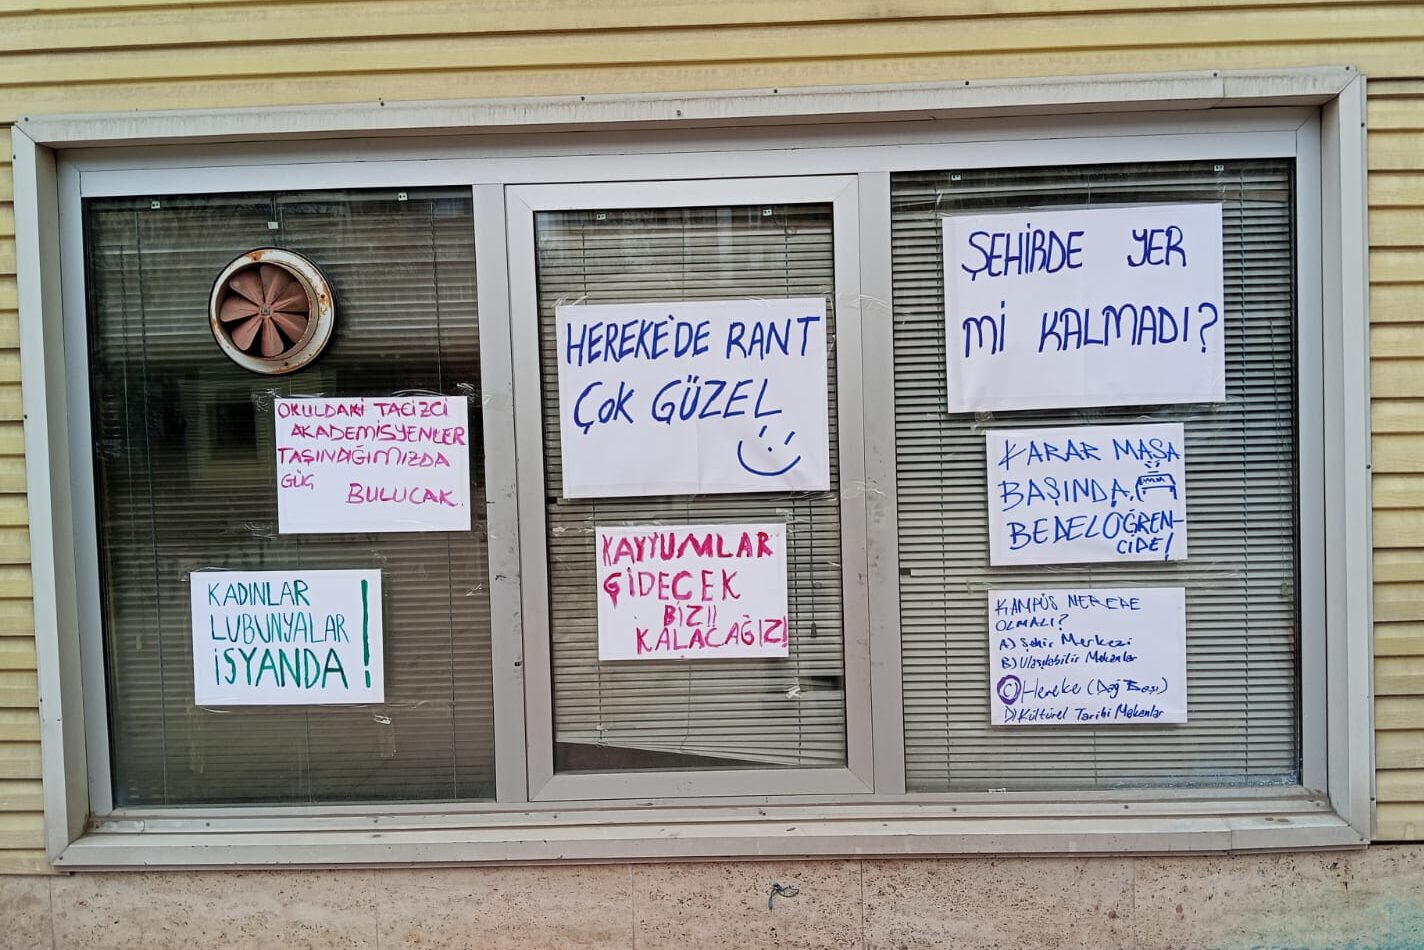 OKULDAKİ TACİZCİ
AKADEMİSYENLER
TAŞINDIĞIMIZDA
GÜÇ
BULUCAK.
KADINLAR
LUBUNYALAR
İSYANDA!
HEREKE'DE RANT
ÇOK GÜZEL
KAYYUMLAR
GİDECEK
BİZ!!
KALACAĞIZ!
ŞEHİRDE YER
Mİ KALMADI?
KARAR MASA
BAŞINDA,
BEDEL ÖĞREN-
CİDE!
KAMPÜS NEREDE
OLMALI?
A) Şehir Merkezi
B) Ulaşılabilir Mekanlar
C) Hereke (Dağ Başı)
D) Kültürel Tarihi Mekanlar